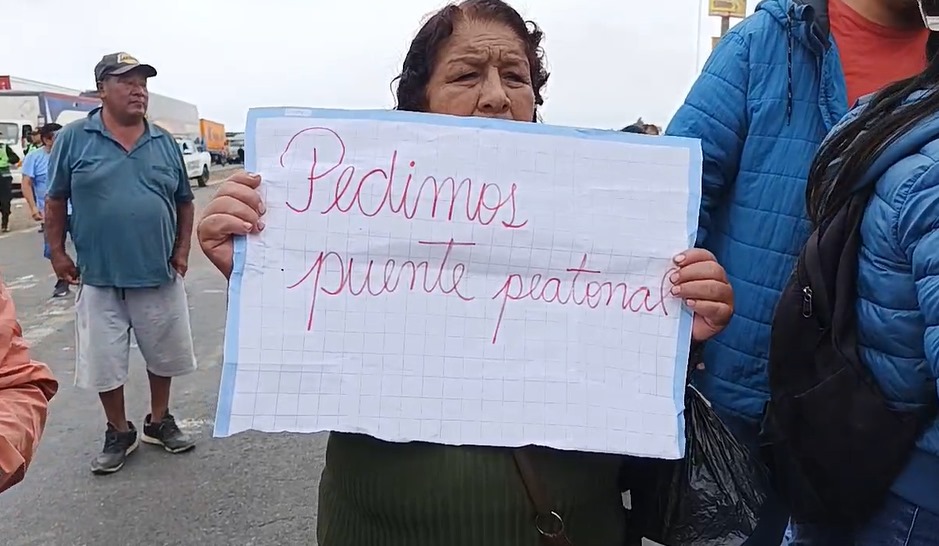 Pedimos
puente peatonal